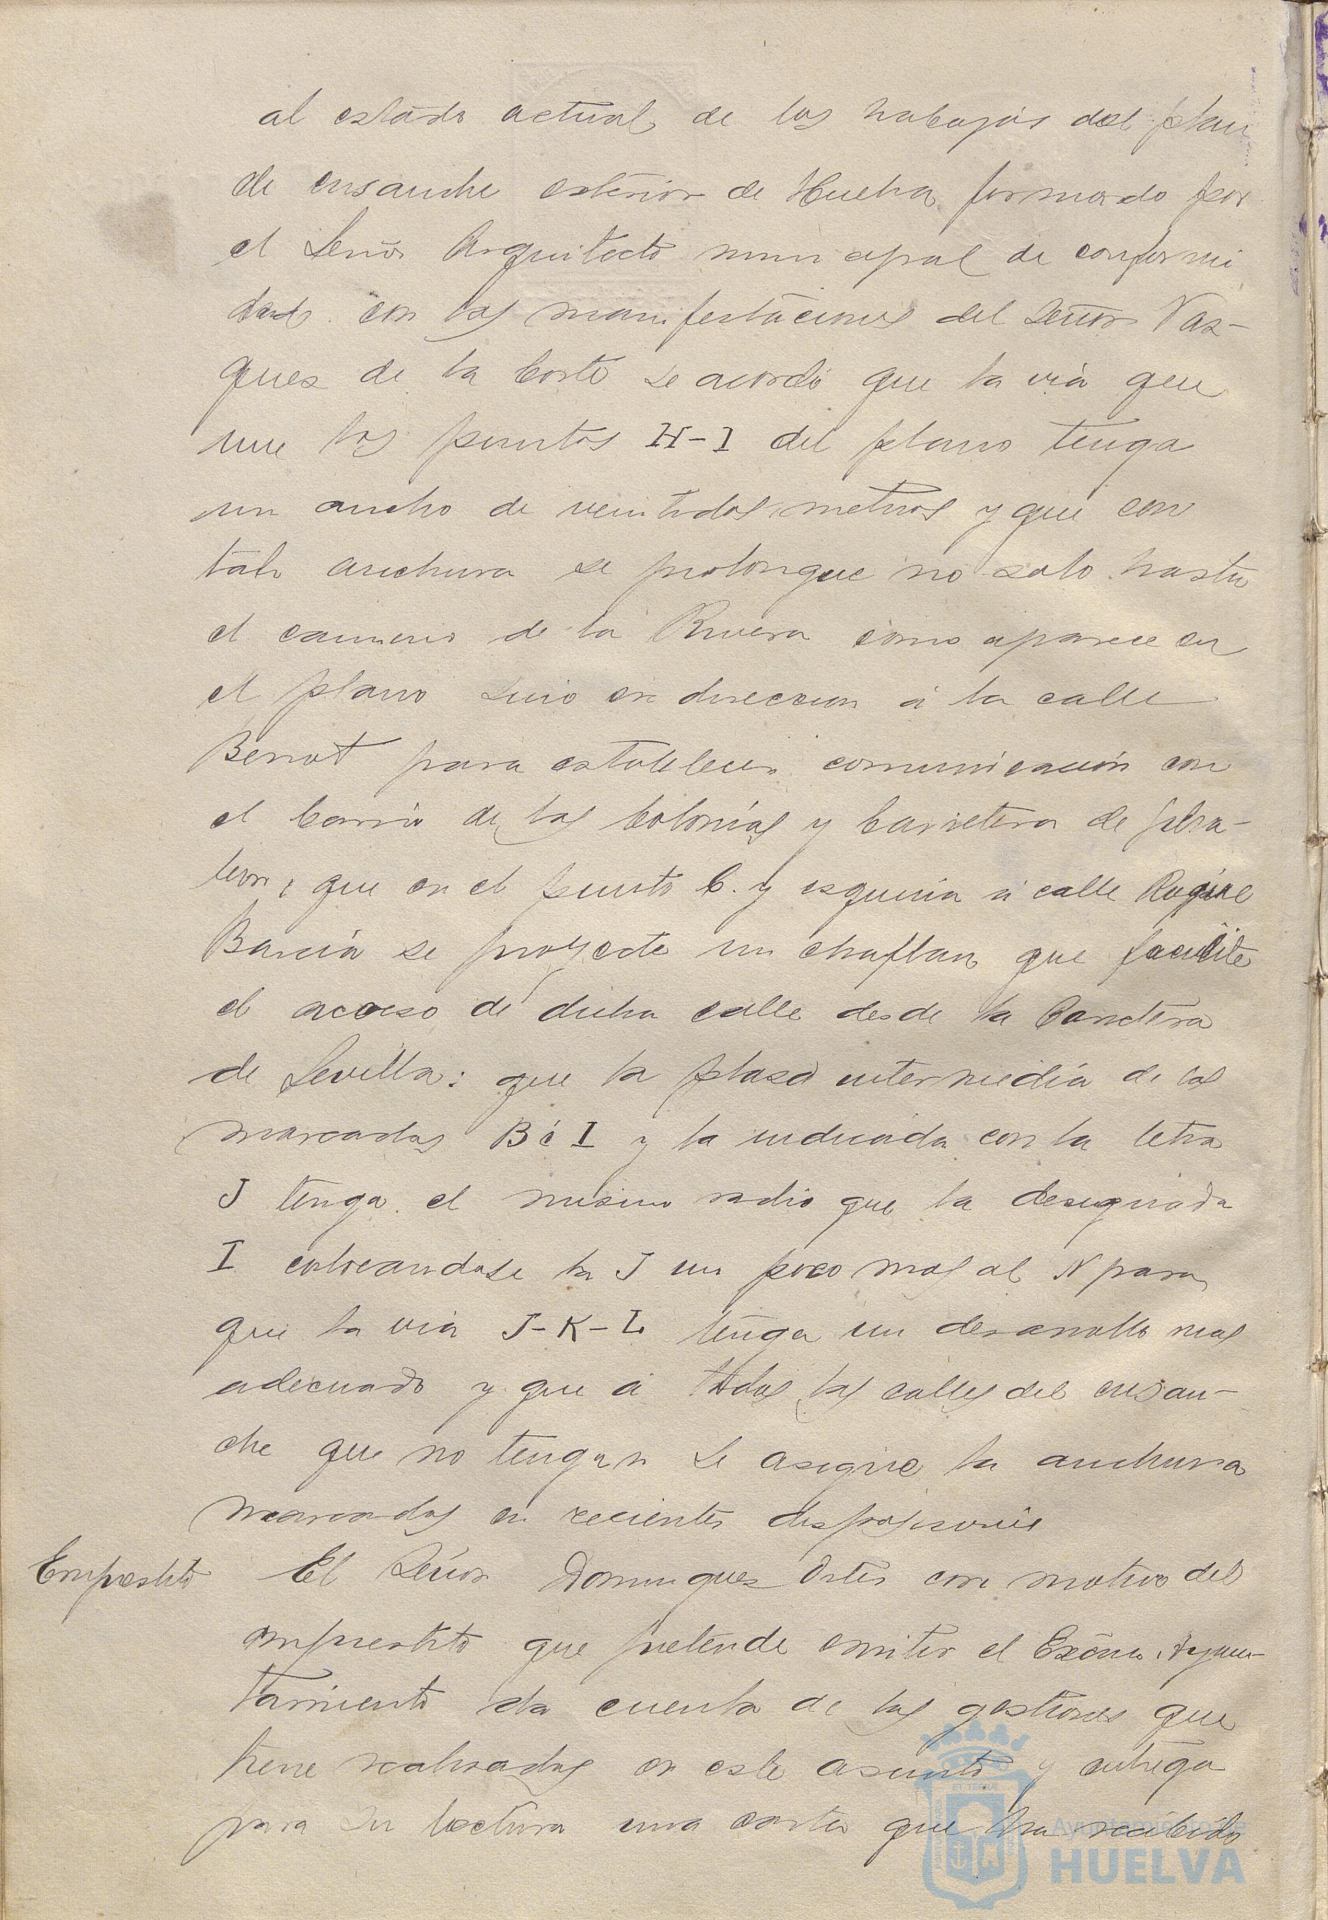 al estado actual de los trabajos del plan
de ensanche exterior de Huelva formado por
el Señor Arquitecto municipal de conformi
dad con las manifestaciones del Señor Vaz-
quez de la Corte se acordó que la via que
une los puntos H-I del plano tenga
un ancho de veintidos metros y que con
tal anchura se prolongue no solo hasta
el camino de la Rivera como aparece en
el plano sino en direccion á la calle
Berrot para establecer comunicación con
el barrio de las Colonias y Carretera de Gibra-
leon, que en el punto C. y esquina á calle Roque
Barcia se proyecte un chaflan que facilite
el acceso de dicha calle desde la Carretera
de Sevilla: que la plaza intermedia de las
marcadas B é I y la indicada con la letra
J tenga el mismo radio que la designada
I colocandose la J un poco mas al N para
que la via J-K-L tenga un desarrollo mas
adecuado y que á todas las calles del ensan-
che que no tengan se asigne la anchura
marcadas en recientes disposiciones
Emprestito El Señor Dominguez Ortiz con motivo del
emprestito que pretende emitir el Excmo. Ayun-
tamiento da cuenta de las gestiones que
tiene realizadas en este asunto y entrega
para su lectura una carta que ha recibido
Ayuntamiento de
HUELVA